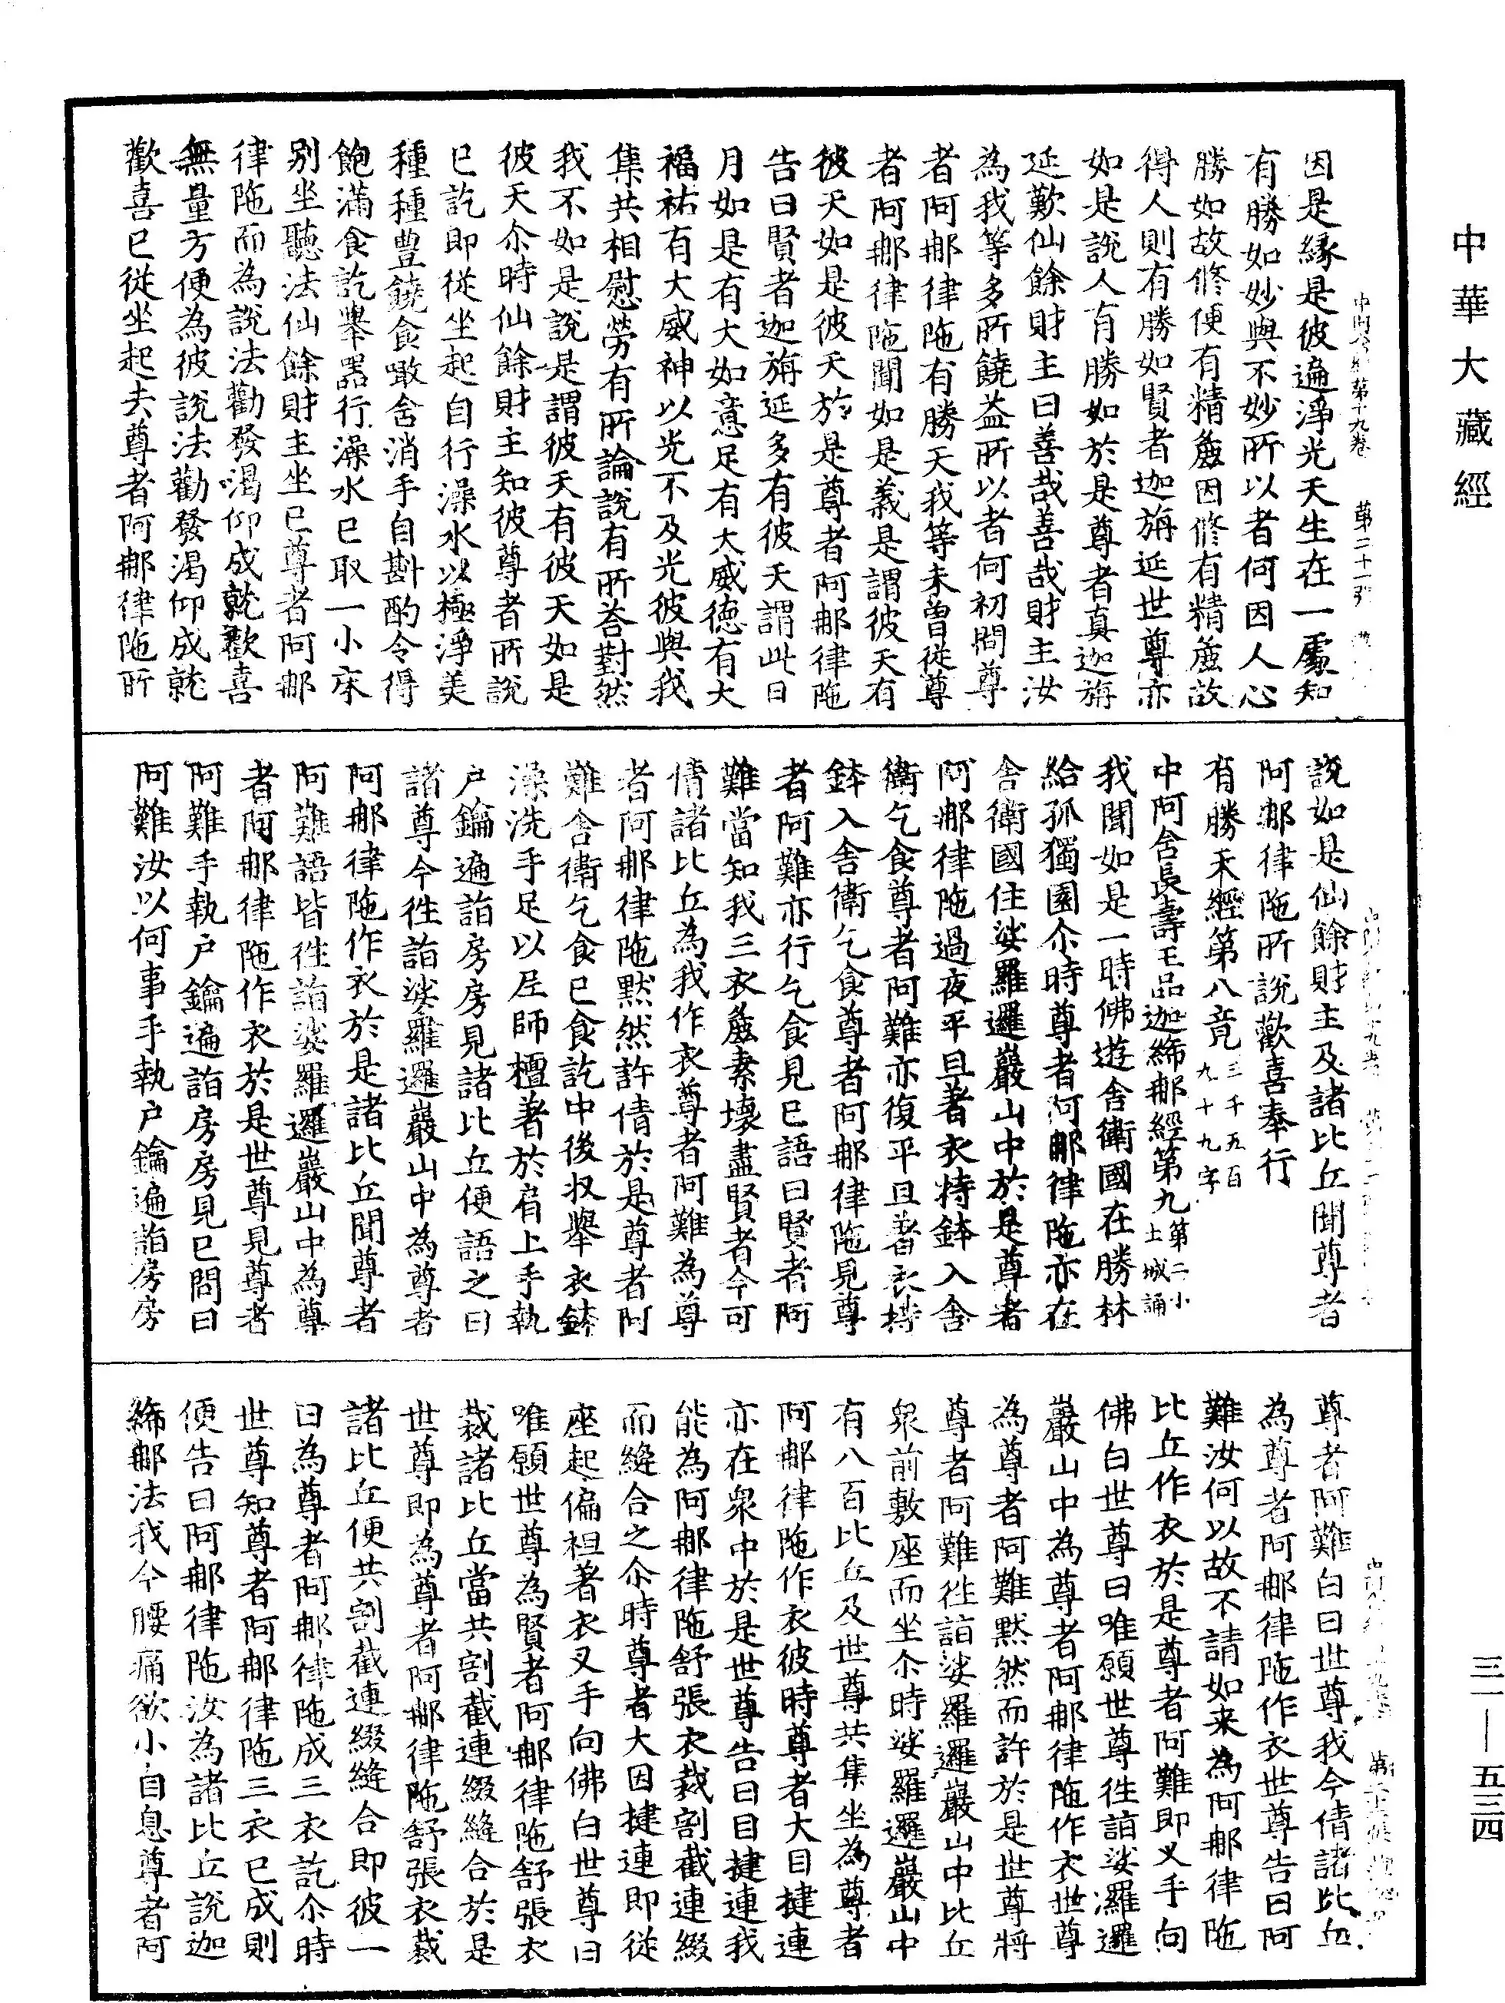 中華大藏經
因是緣是彼遍淨光天生在一處知
有勝如妙與不妙所以者何因人心
勝如故修便有精麁因修有精麁故
得人則有勝如賢者迦旃延世尊亦
如是說人有勝如於是尊者真迦旃
延歎仙餘財主曰善哉善哉財主汝
為我等多所饒益所以者何初問尊
者阿那律陁有勝天我等未曽從尊
者阿那律陁聞如是義是謂彼天有
彼天如是彼天於是尊者阿那律陁
告曰賢者迦旃延多有彼天謂此日
月如是有大如意足有大威德有大
福祐有大威神以光不及光彼與我
集共相慰勞有所論說有所荅對然
我不如是說是謂彼天有彼天如是
彼天尒時仙餘財主知彼尊者所說
已訖即從坐起自行澡水以極淨美
種種豊饒食噉含消手自斟酌令得
飽滿食訖舉器行澡水已取一小床
别坐聽法仙餘財主坐已尊者阿那
律陁而為說法勸發渴仰成就歡喜
無量方便為彼說法勸發渴仰成就
歡喜已從坐起去尊者阿那律陁所
說如是仙餘財主及諸比丘聞尊者
阿那律陁所說歡喜奉行
有勝天經第八竟 三千五百九十九字
中阿含長壽王品迦絺那經第九 第二小土城誦
我聞如是一時佛遊舍衛國在勝林
給孤獨園尒時尊者阿那律陁亦在
舍衛國住娑羅邏巖山中於是尊者
阿那律陁過夜平旦著衣持鉢入舍
衛乞食尊者阿難亦復平旦著衣持
鉢入舍衛乞食尊者阿那律陁見尊
者阿難亦行乞食見已語曰賢者阿
難當知我三衣麁素壞盡賢者今可
倩諸比丘為我作衣尊者阿難為尊
者阿那律陁默然許倩於是尊者阿
難舍衛乞食已食訖中後收舉衣鉢
澡洗手足以尼師檀著於肩上手執
戶鑰遍詣房房見諸比丘便語之曰
諸尊今往詣娑羅邏巖山中為尊者
阿那律陁作衣於是諸比丘聞尊者
阿難語皆往詣娑羅邏巖山中為尊
者阿那律陁作衣於是世尊見尊者
阿難手執戶鑰遍詣房房見已問曰
阿難汝以何事手執戶鑰遍詣房房
尊者阿難白曰世尊我今倩諸比丘
為尊者阿那律陁作衣世尊告曰阿
難汝何以故不請如来為阿那律陁
比丘作衣於是尊者阿難即叉手向
佛白世尊曰唯願世尊往詣娑羅邏
巖山中為尊者阿那律陁作衣世尊
為尊者阿難默然而許於是世尊將
尊者阿難往詣娑羅邏巖山中比丘
衆前敷座而坐尒時娑羅邏巖山中
有八百比丘及世尊共集坐為尊者
阿那律陁作衣彼時尊者大目揵連
亦在衆中於是世尊告曰目揵連我
能為阿那律陁舒張衣裁割截連綴
而縫合之尒時尊者大目揵連即從
座起偏袒著衣叉手向佛白世尊曰
唯願世尊為賢者阿那律陁舒張衣
裁諸比丘當共割截連綴縫合於是
世尊即為尊者阿那律陁舒張衣裁
諸比丘便共割截連綴縫合即彼一
日為尊者阿那律陁成三衣訖尒時
世尊知尊者阿那律陁三衣已成則
便告曰阿那律陁汝為諸比丘說迦
絺那法我今腰痛欲小自息尊者阿
三一—五三四